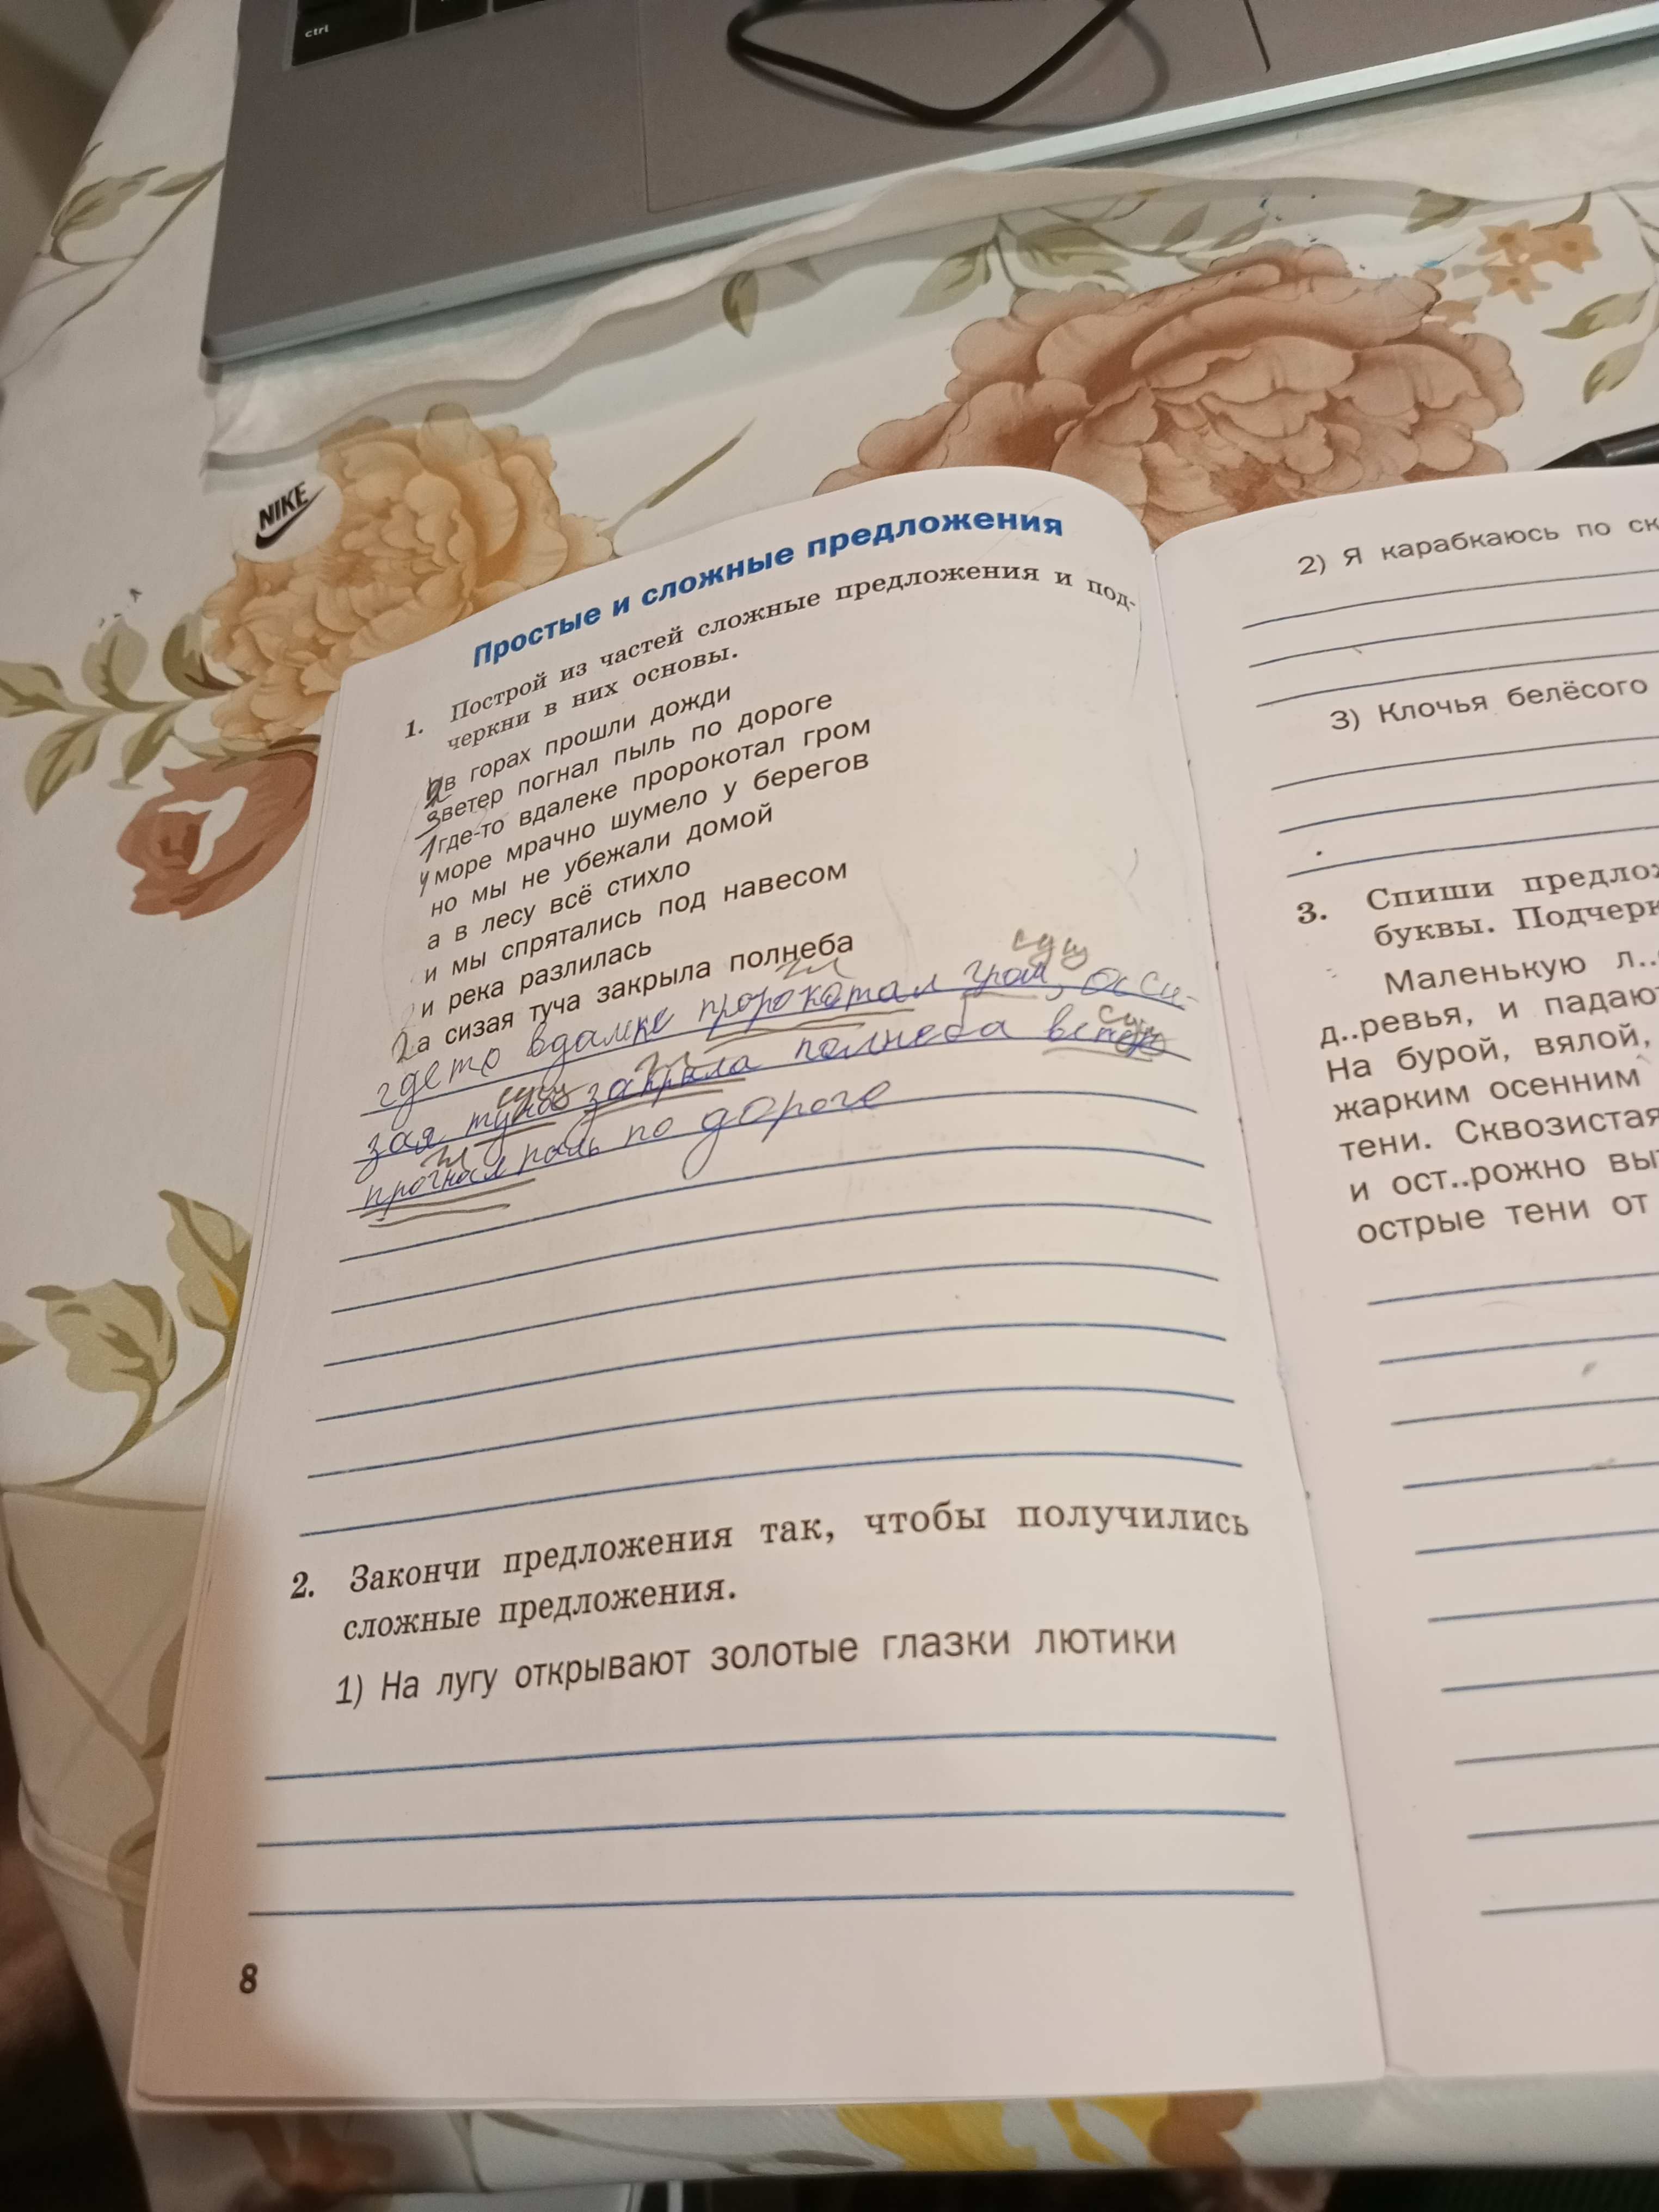 ctrl
NIKE
Простые и сложные предложения
1. Построй из частей сложные предложения и под-
черкни в них основы.
2 в горах прошли дожди
3 ветер погнал пыль по дороге
1 где-то вдалеке пророкотал гром
4 море мрачно шумело у берегов
но мы не убежали домой
а в лесу всё стихло
и мы спрятались под навесом
и река разлилась
2 а сизая туча закрыла полнеба
гл сущ
где то вдалеке пророкотал гром, а си-
сущ гл сущ
зая туча закрыла полнеба ветер
гл
прогнал пыль по дороге
2. Закончи предложения так, чтобы получились
сложные предложения.
1) На лугу открывают золотые глазки лютики
8
2) Я карабкаюсь по ск
3) Клочья белёсого
3. Спиши предлож
буквы. Подчерк
Маленькую л..
д..ревья, и падают
На бурой, вялой,
жарким осенним
тени. Сквозистая
и ост..рожно вы
острые тени от